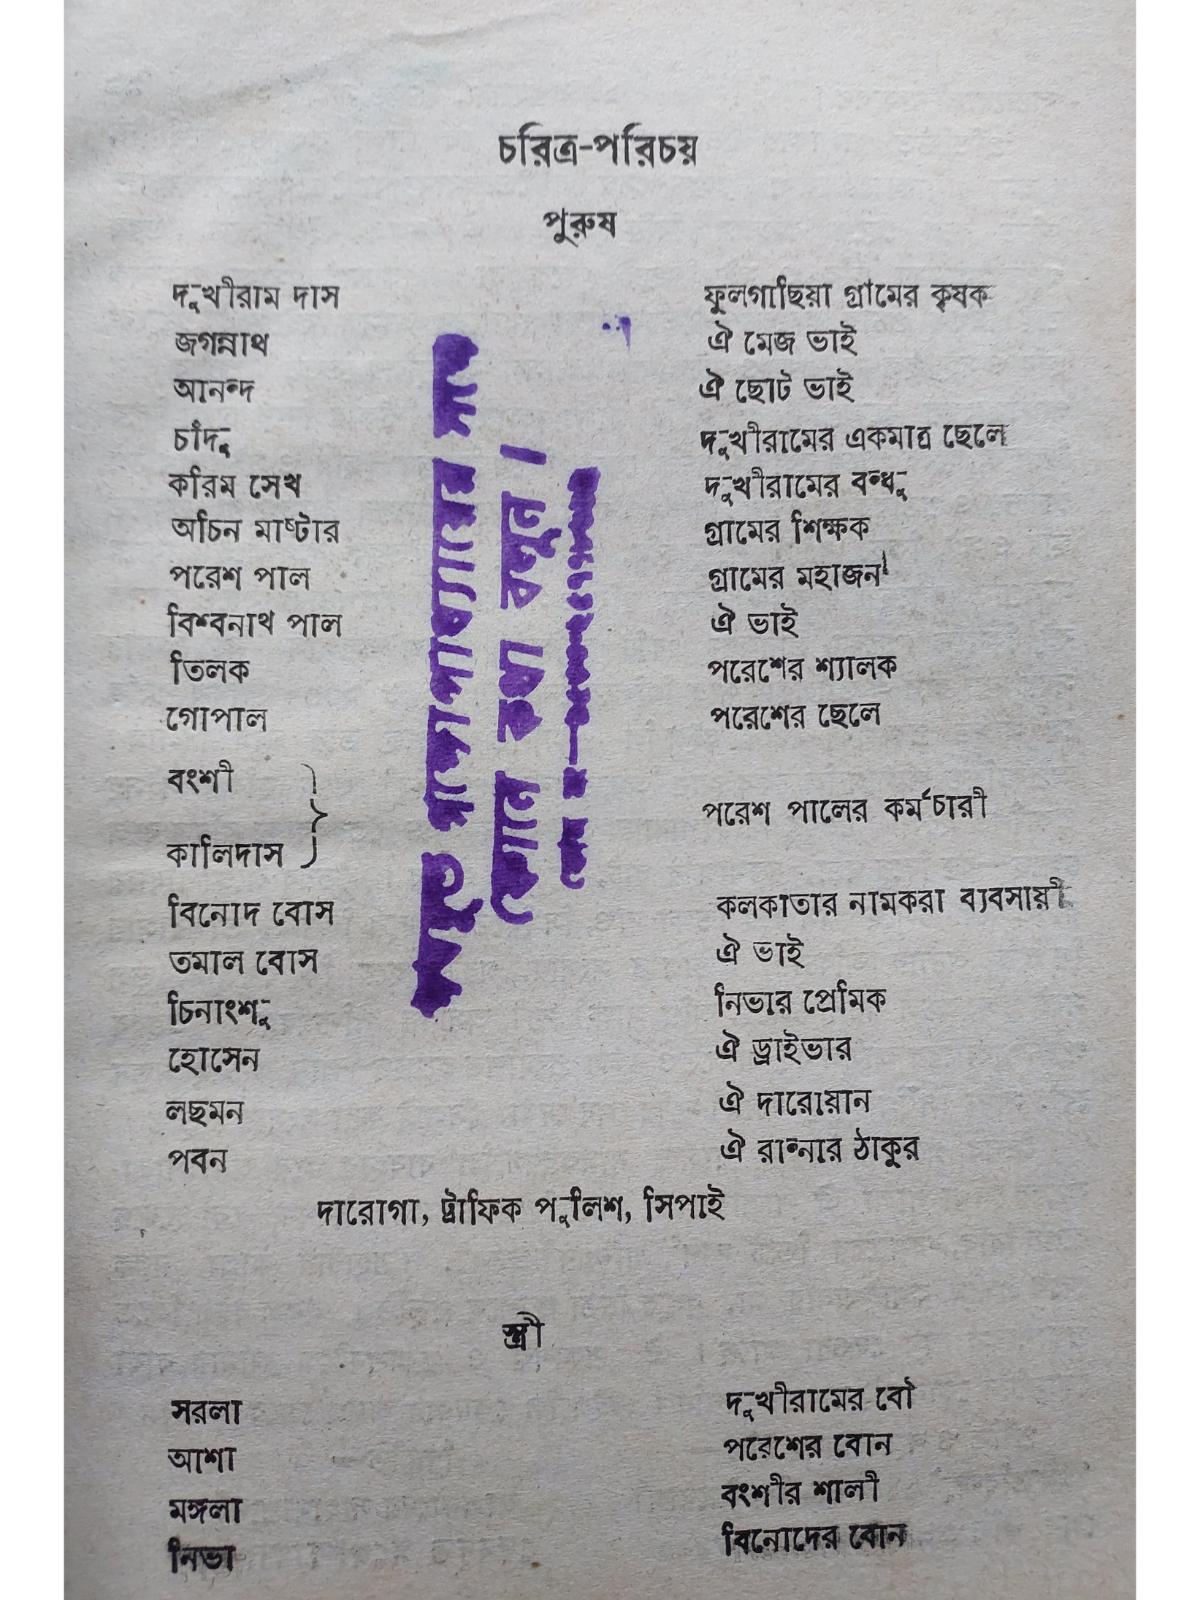 চরিত্র-পরিচয়
পুরুষ
দুখীরাম দাস ফুলগাছিয়া গ্রামের কৃষক
জগন্নাথ ঐ মেজ ভাই
আনন্দ ঐ ছোট ভাই
চাঁদু দুখীরামের একমাত্র ছেলে
করিম সেখ দুখীরামের বন্ধু
অচিন মাষ্টার গ্রামের শিক্ষক
পরেশ পাল গ্রামের মহাজন
বিশ্বনাথ পাল ঐ ভাই
তিলক পরেশের শ্যালক
গোপাল পরেশের ছেলে
বংশী
কালিদাস } পরেশ পালের কর্মচারী
বিনোদ বোস কলকাতার নামকরা ব্যবসায়ী
তমাল বোস ঐ ভাই
চিনাংশু নিভার প্রেমিক
হোসেন ঐ ড্রাইভার
লছমন ঐ দারোয়ান
পবন ঐ রান্নার ঠাকুর
দারোগা, ট্রাফিক পুলিশ, সিপাই
স্ত্রী
সরলা দুখীরামের বৌ
আশা পরেশের বোন
মঙ্গলা বংশীর শালী
নিভা বিনোদের বোন
ফোনে কথা বলুন।